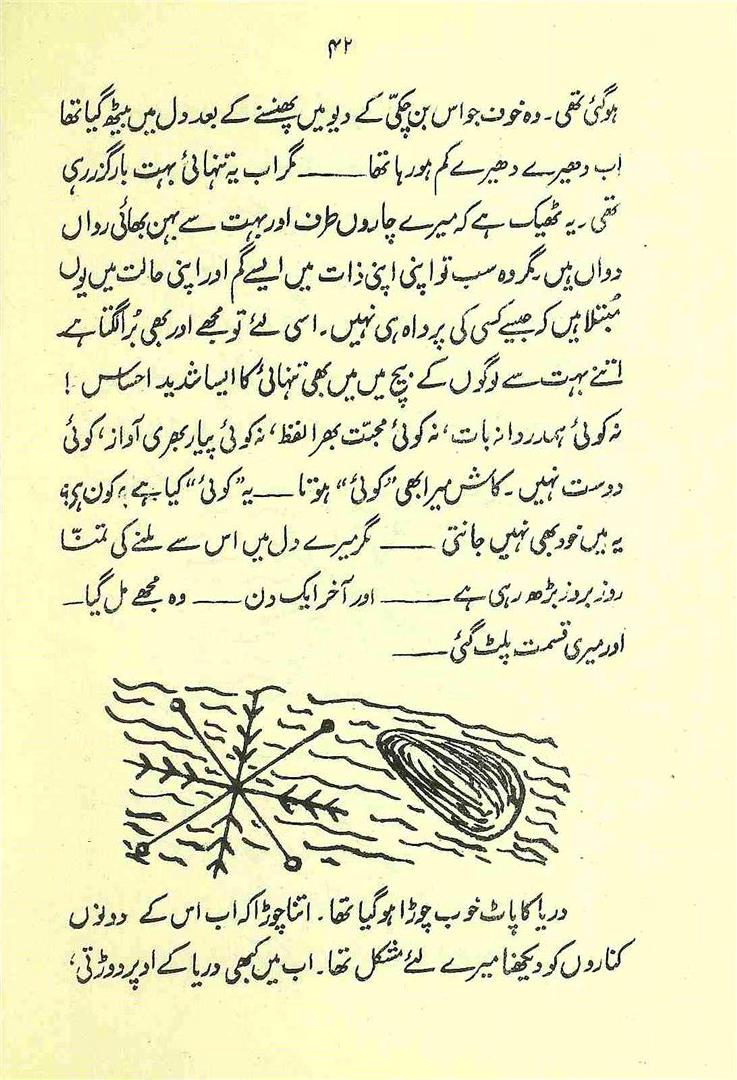 ۴۲
ہوگئی تھی۔ وہ خوف جو اس بن چکّی کے دیو میں پھنسنے کے بعد دل میں بیٹھ گیا تھا
اب دھیرے دھیرے کم ہو رہا تھا —— مگر اب یہ تنہائی بہت بار گزر رہی
تھی۔ یہ ٹھیک ہے کہ میرے چاروں طرف اور بہت سے بہن بھائی رواں
دواں ہیں۔ مگر وہ سب تو اپنی اپنی ذات میں ایسے گم اور اپنی حالت میں یوں
مُبتلا ہیں کہ جیسے کسی کی پرواہ ہی نہیں۔ اسی لئے تو مجھے اور بھی بُرا لگتا ہے
اتنے بہت سے لوگوں کے بیچ میں میں بھی تنہائی کا ایسا شدید احساس !
نہ کوئی ہمدردانہ بات، نہ کوئی محبّت بھرا لفظ، نہ کوئی پیار بھری آواز، کوئی
دوست نہیں۔ کاش میرا بھی “کوئی” ہوتا — یہ “کوئی” کیا ہے؟ کون ہے؟
یہ میں خود بھی نہیں جانتی —— مگر میرے دل میں اس سے ملنے کی تمنّا
روز بروز بڑھ رہی ہے —— اور آخر ایک دن —— وہ مجھے مل گیا—
اور میری قسمت پلٹ گئی ——
دریا کا پاٹ خوب چوڑا ہوگیا تھا۔ اتنا چوڑا کہ اب اس کے دونوں
کناروں کو دیکھنا میرے لئے مشکل تھا۔ اب میں کبھی دریا کے اوپر دوڑتی،